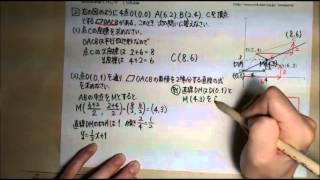 ② 右の図のように4点O(0,0) A(6,2) B(2,4) Cを頂点
とする▱OACBがある。このとき、次の問いに答えなさい。
(1) 点Cの座標を求めなさい。
OACBは平行四辺形なので
点Cのx座標は 2+6=8
y座標は 4+2=6
C(8,6)
(2) 点D(0,1)を通り ▱OACBの面積を2等分する直線の式
を求めなさい。
ABの中点をMとすると
M(6+2/2, 2+4/2)=(8/2, 6/2)=(4,3)
直線DMの
y=1/2x+1
直線DMはD(0,1)と
M(4,3)を
(8,6)